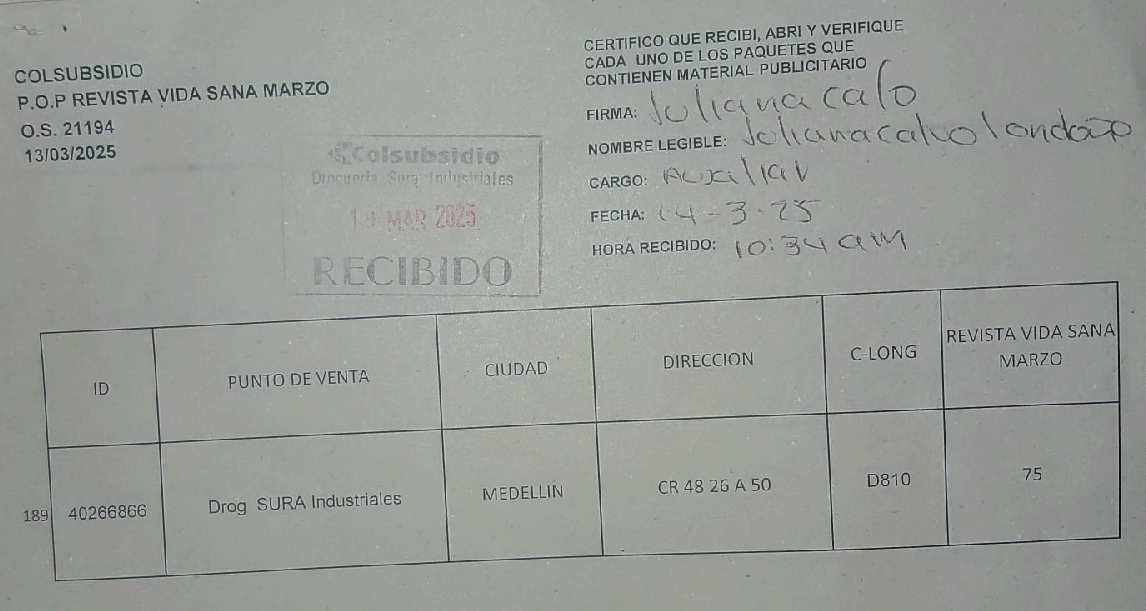 COLSUBSIDIO
P.O.P REVISTA VIDA SANA MARZO
O.S. 21194
13/03/2025
CERTIFICO QUE RECIBI, ABRI Y VERIFIQUE
CADA UNO DE LOS PAQUETES QUE
CONTIENEN MATERIAL PUBLICITARIO
FIRMA: Juliana calo
NOMBRE LEGIBLE: Juliana calvo londoño
CARGO: Auxiliar
FECHA: 14-3-25
HORA RECIBIDO: 10:34 am
Colsubsidio
Droguería Sura Industriales
14 MAR 2025
RECIBIDO
ID PUNTO DE VENTA CIUDAD DIRECCION C-LONG REVISTA VIDA SANA
MARZO
189 40266866 Drog SURA Industriales MEDELLIN CR 48 26 A 50 D810 75